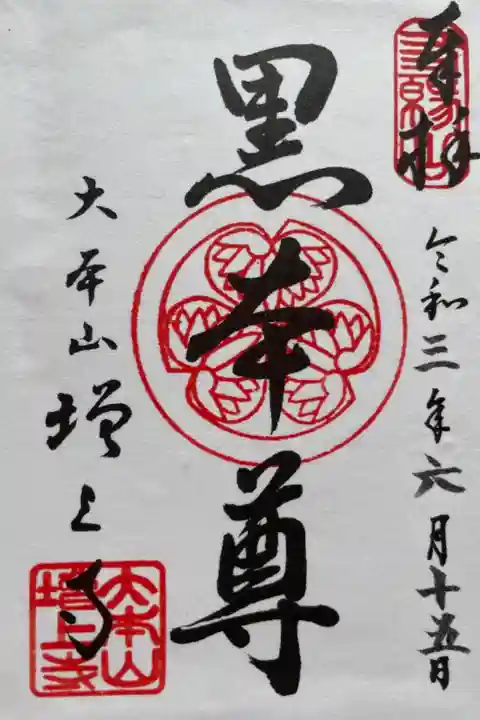 奉拝
三縁山
令和三年六月十五日
黒本尊
大本山増上寺
大本山
増上寺